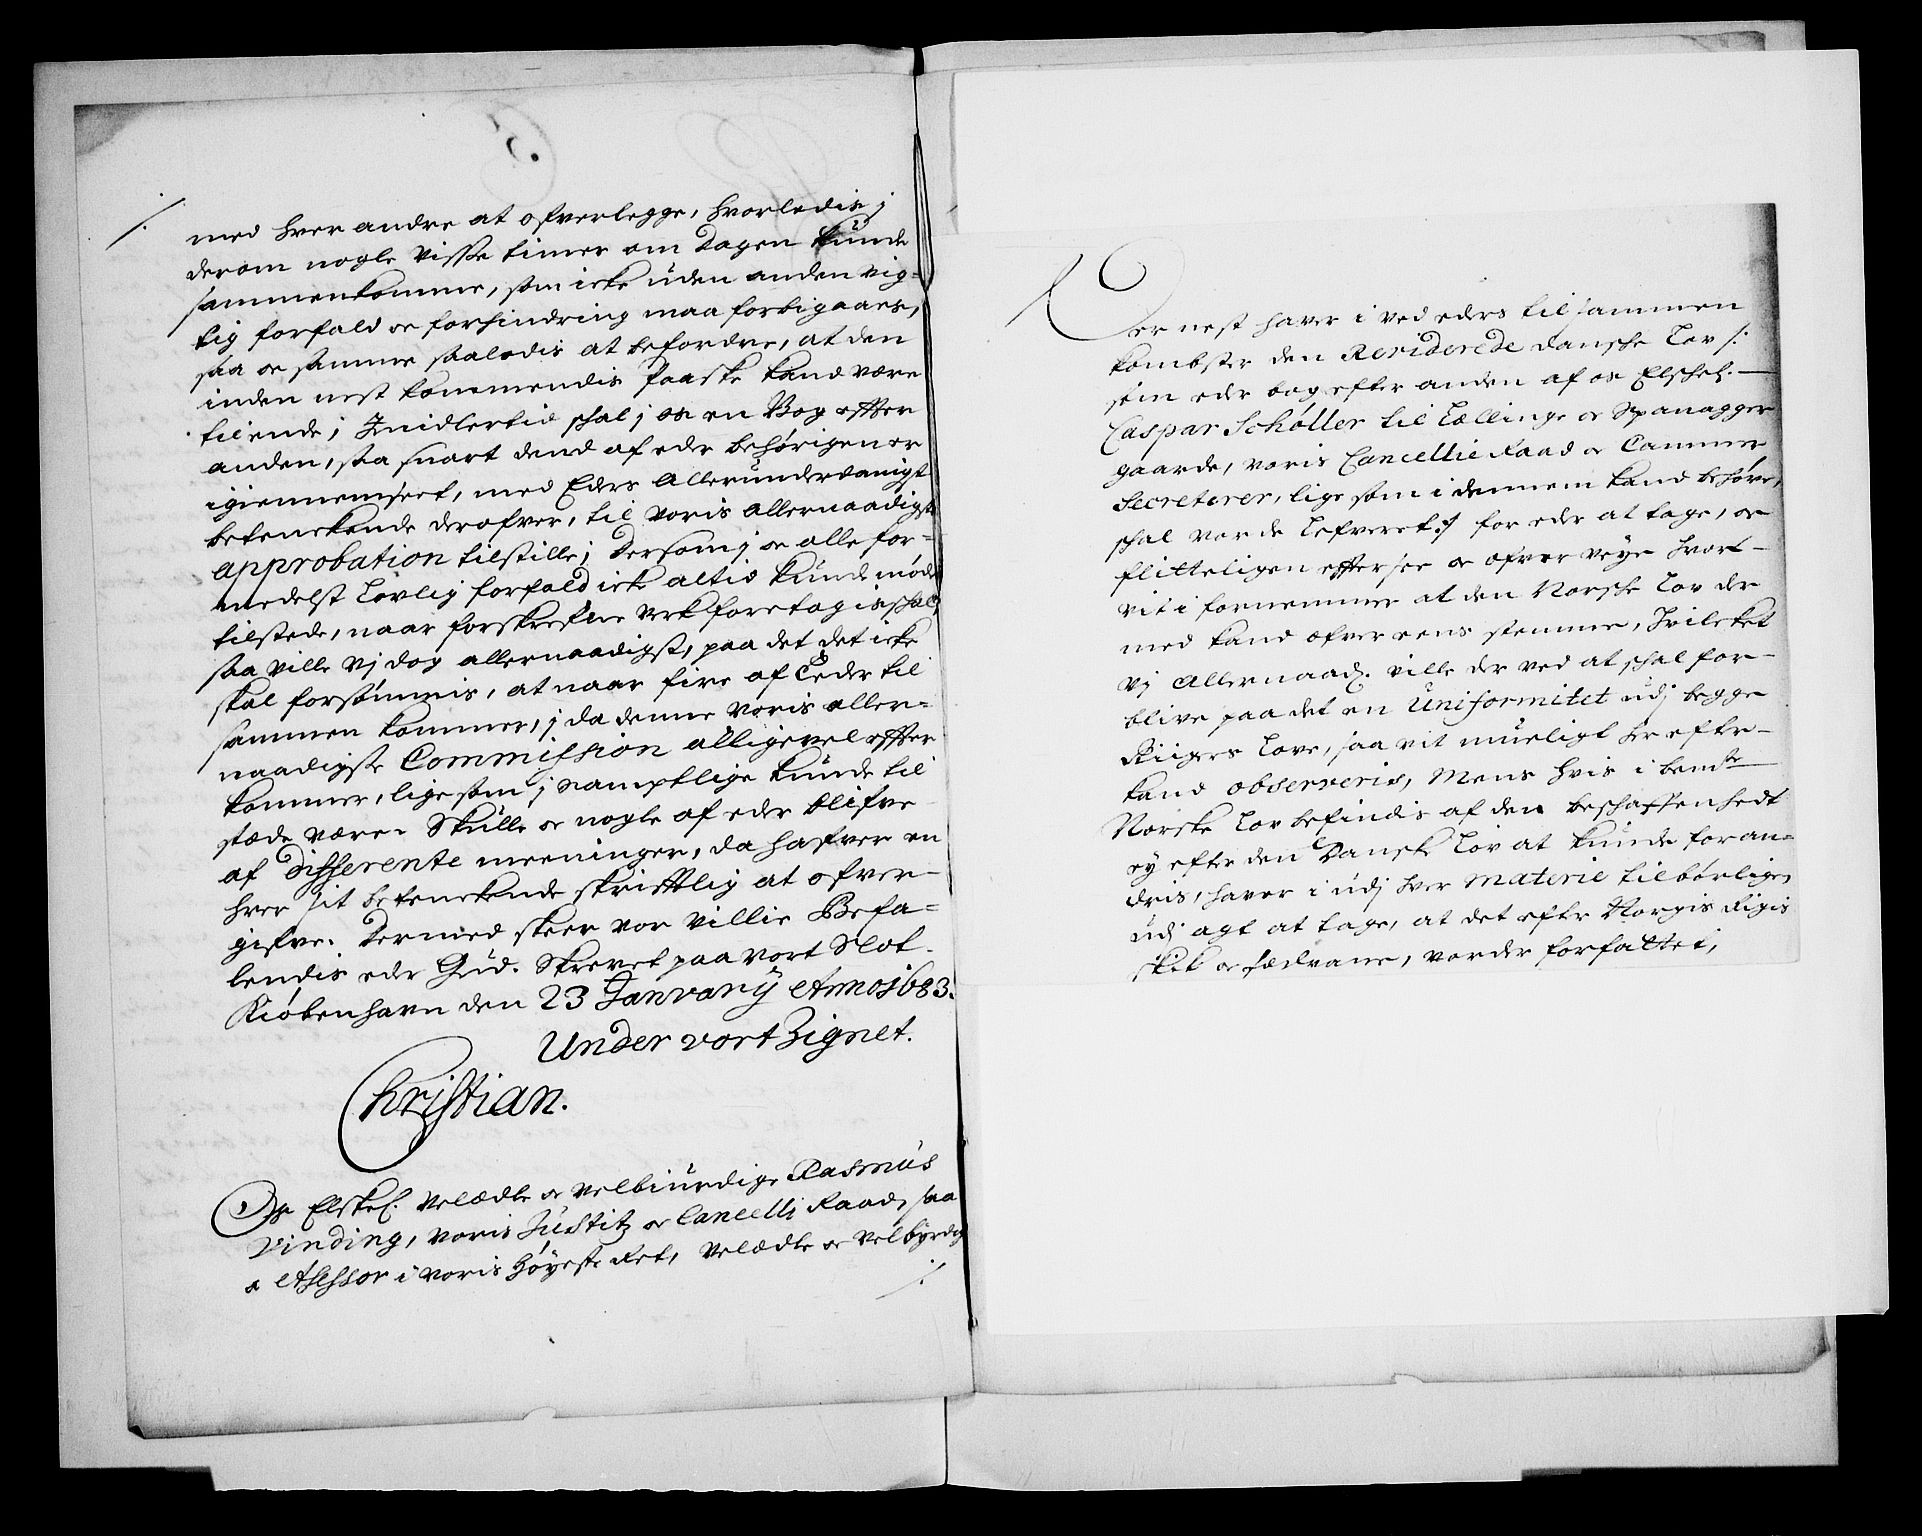 med hver andre at ofverlegge, hvorledis j
derom nogle Visse timer om Dagen kunde
sammenkomme, som icke uden anden vig-
tig forfald oc forhindring maa forbigaaes,
saa oc samme saaledis at befordre, at den
inden nest kommendis Paaske kand være
til ende; Imidlertid schal j os en Bog effter
anden, saa snart dend af eder behørigen er
igiennemseet, med Eders Allerunderdanigst
betenckende derofver, til voris allernaadigste
approbation tilstille; Dersom j oc alle for-
medelst Lovlig forfald ick altid kunde møde
tilstede, naar forskrefne verk foretagis schal,
saa ville Vj dog allernaadigst, paa det det icke
skal forsømmis, at naar fire af Eder til
sammen kommer, j da denne voris aller-
naadigste Commission alligevel effter
kommer, lige som j samptlige kunde til
stæde være. Skulle oc nogle af eder blifve
af differente meeninger, da hafver en
hver sit betenckende skrifftlig at ofver-
gifve. Dermed skeer vor villie Befa-
lendis eder Gud. Skrevet paa vort Slot
Kiøbenhavn den 23 Januarij Anno 1683.
Under vort Zignet.
Christian.
Os Elskel. Velædle oc velbiurdige Rasmus
Vinding, voris Justitz oc Cancelli Raad, saa
oc Assessor i voris Høyeste Ret, Velædle oc Velbyrdig
./.
Dernest haver i ved eders til sammen
kombster den Reviderede Dansche Lov /:
som eder bog efter anden af os Elschel.
Caspar Schøller til Lellinge oc Spanagger
gaarde, voris Cancellie Raad oc Cammer
Secreterer, lige som i dennem kand behøve,
schal vorde Lefveret :/ for eder at tage, oc
flitteligen effter see oc ofver veye hvort-
vit i fornemmer at den Norsche Lov der
med kand ofver eens stemme, Hvilcket
Vj Allernaad. ville der ved at schal for-
blive paa det en Uniformitet udj begge
Riigers Love, saa vit mueligt her efter
kand observeris, Mens hvis i bemte
Norske Lov befindis af den beschaffenhedt
ey efter den Dansk Lov at kunde foran-
dris, haver i udj hver materie tilbørligen
udj agt at tage, at det efter Norgis Rigis
skik oc sædvane, vorder forfattet,